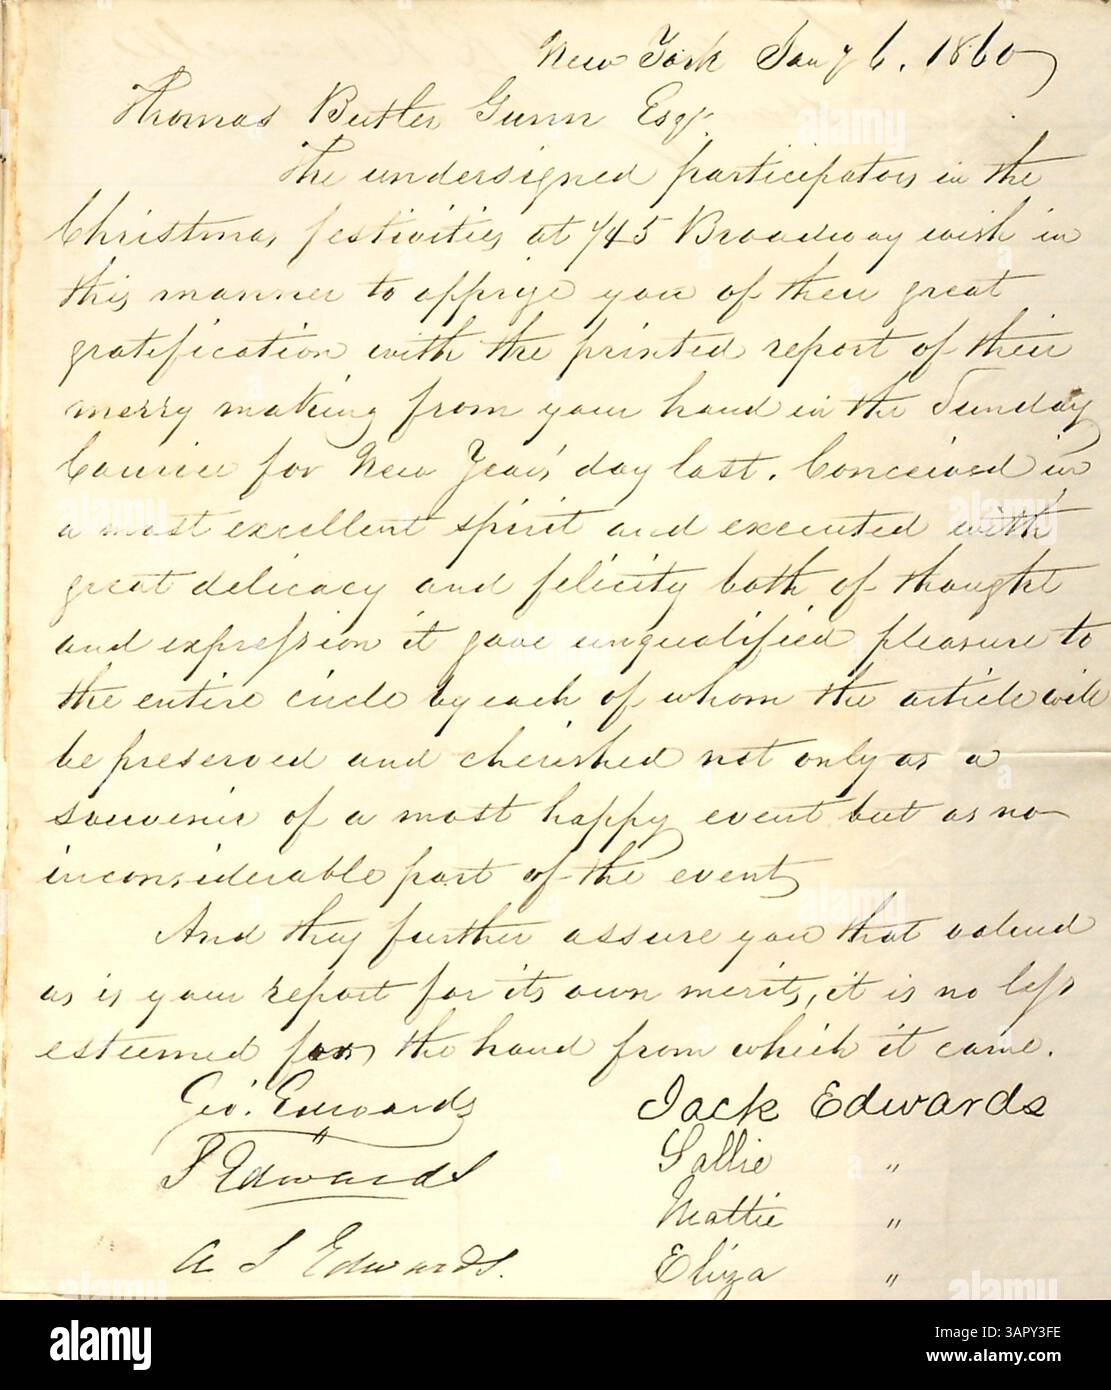 New York Jany 6. 1860
Thomas Butler Gunn Esqr.
The undersigned participators in the
Christmas festivities at 745 Broadway wish in
this manner to apprize you of their great
gratification with the printed report of their
merry making from your hand in the Sunday
Courier for New Year's day last. Conceived in
a most excellent spirit and executed with
great delicacy and felicity both of thought
and expression it gave unqualified pleasure to
the entire circle by each of whom the article will
be preserved and cherished not only as a
souvenir of a most happy event but as no
inconsiderable part of the event
And they further assure you that valued
as is your report for its own merits, it is no less
esteemed for the hand from which it came.
Geo. Edwards Jack Edwards
S Edwards Sallie "
Mattie "
A S Edwards. Eliza "
alamy
Image ID: 3APY3FE
www.alamy.com